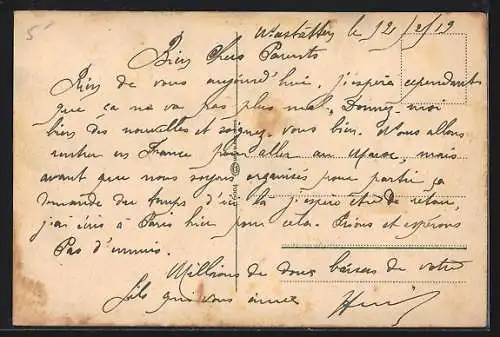 5
le 12/2/19
Bien Chers Parents
Rien de vous aujourd'hui. J'espère cependants
que ça ne va pas plus mal. Donnez-moi
bien des nouvelles et soignez-vous bien. Nous allons
rentrer en France pour aller au Maroc, mais
avant que nous soyons organisés pour partir ça
demande du temps d'ici là j'espère être de retour,
j'ai écris à Paris hier pour cela. Prions et espérons
Pas d'ennuis.
Millions de doux baisers de votre
fils qui vous aime